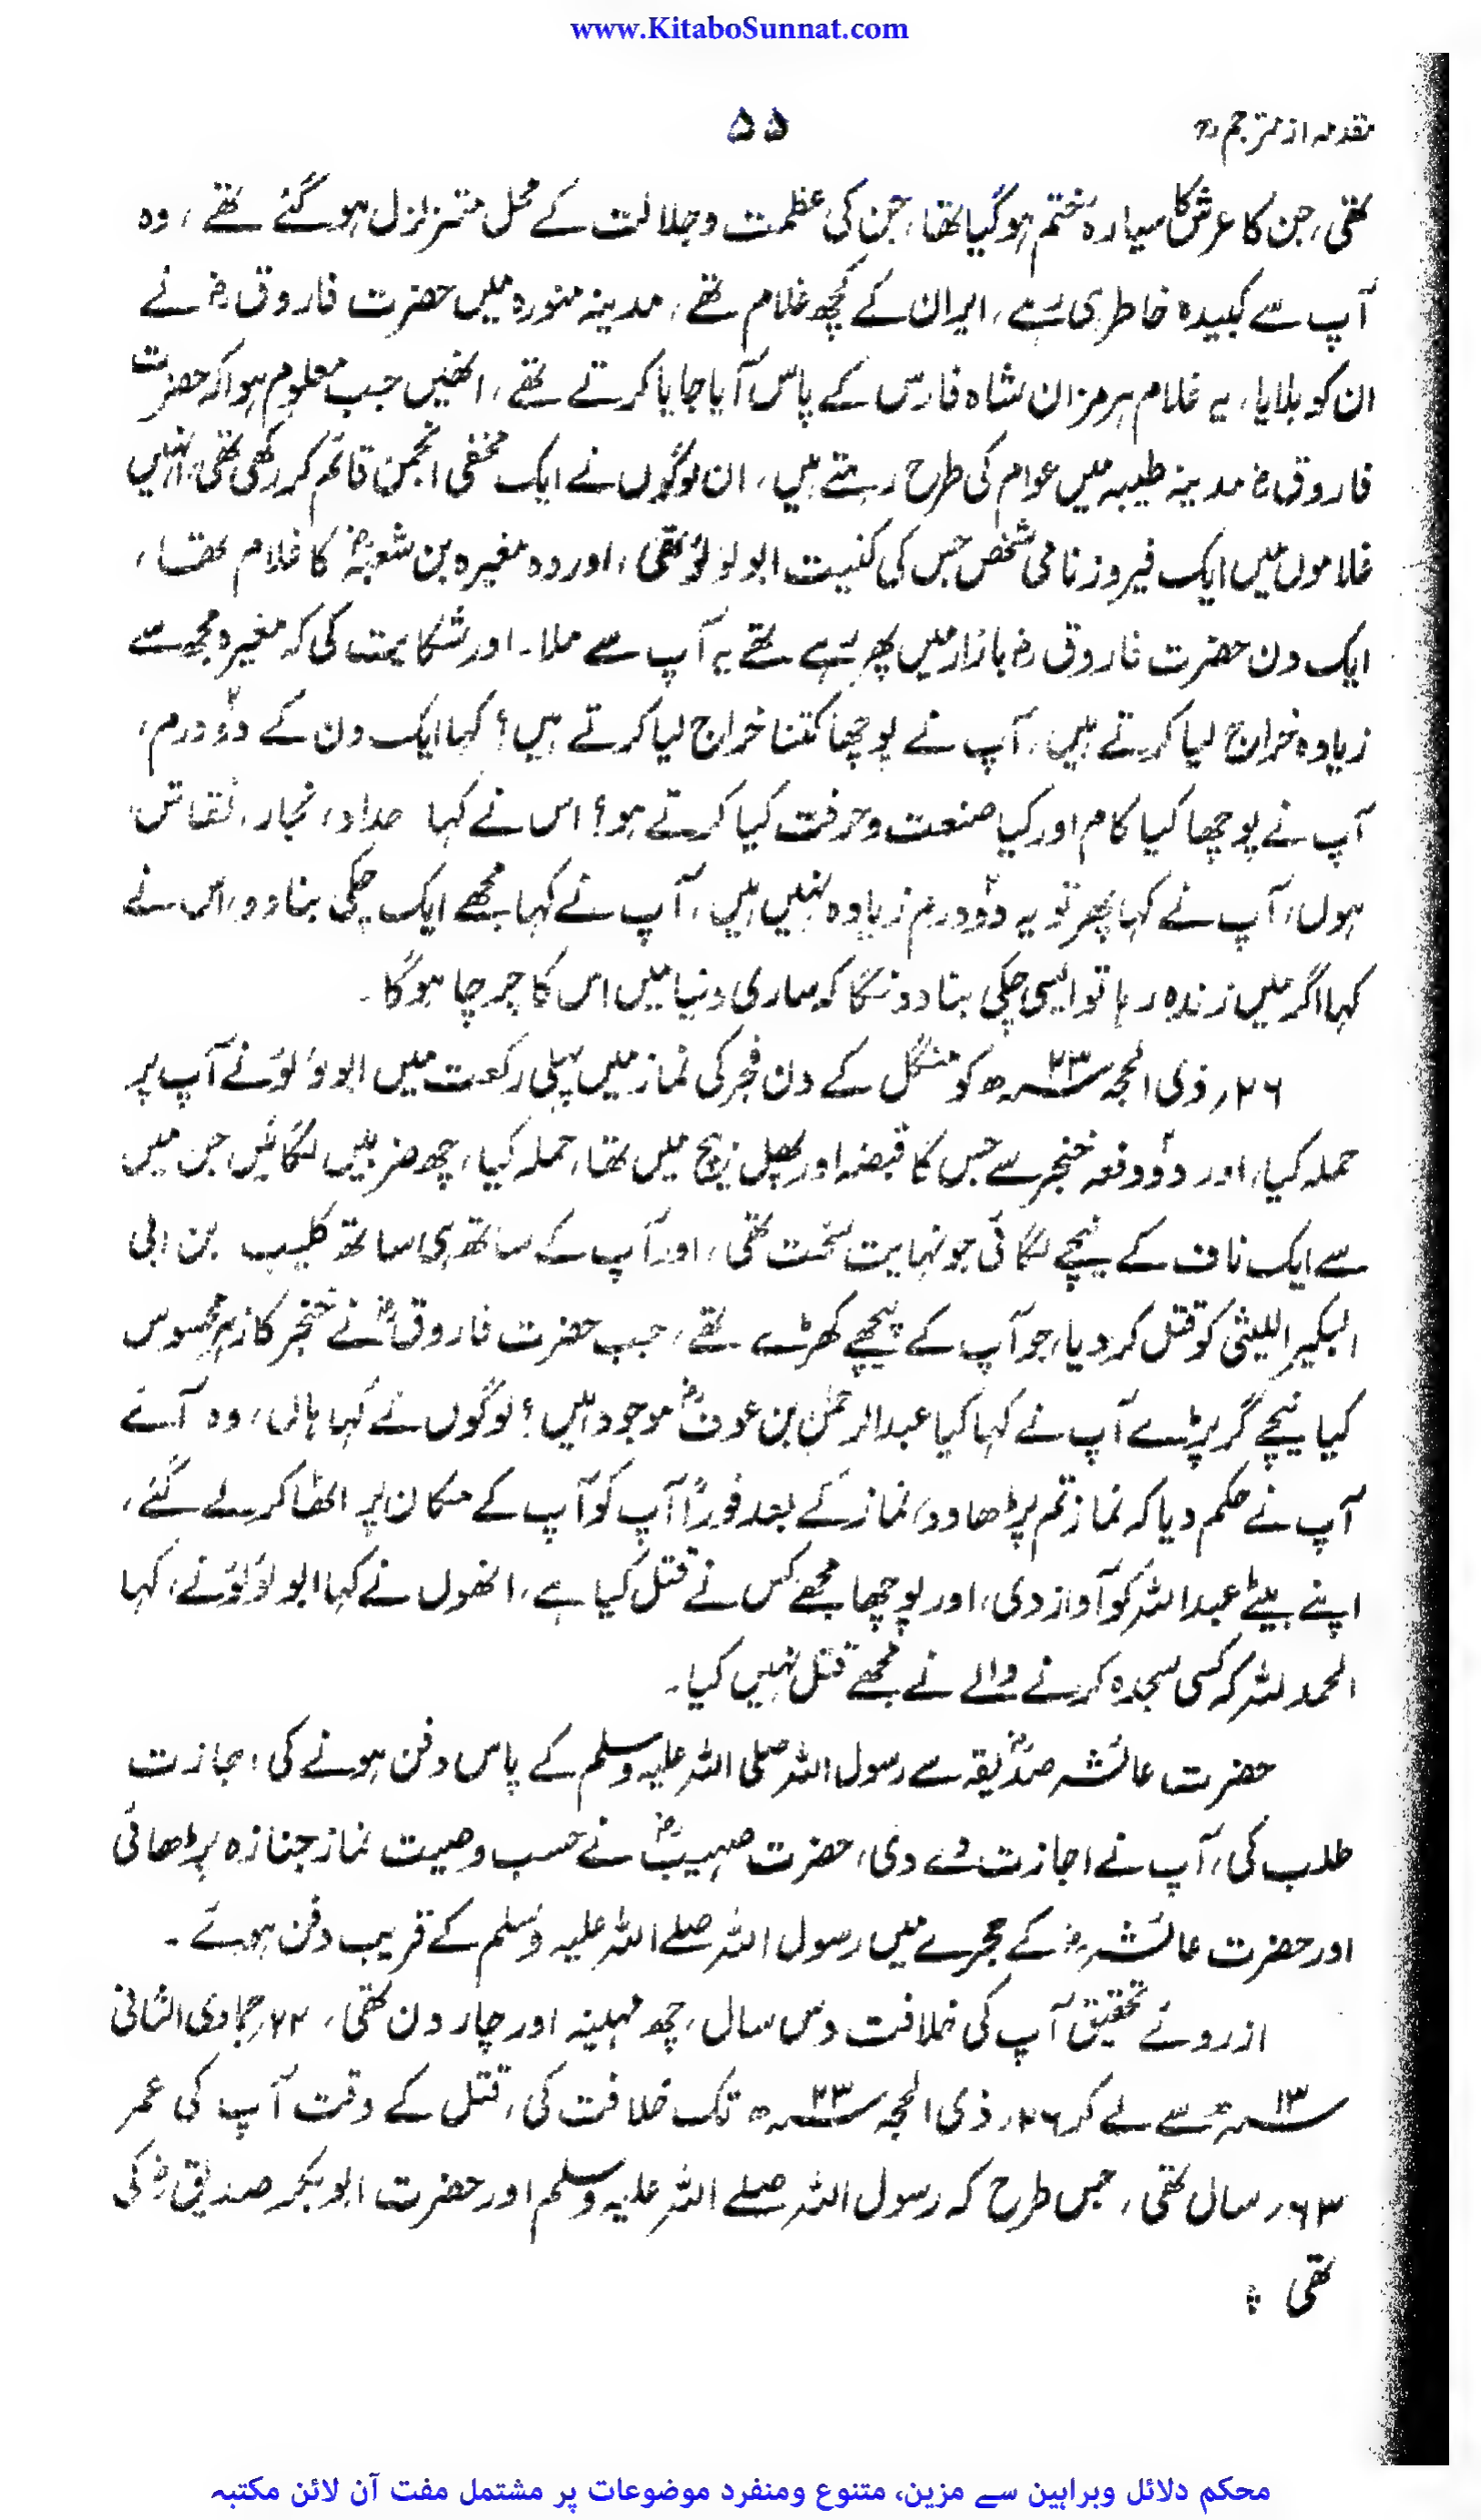 www.KitaboSunnat.com
مقدمہ از مترجم رح
۵۵
تھی، جن کا عرش کا سیارہ ختم ہو گیا تھا، جن کی عظمت و جلالت کے محل متزلزل ہو گئے تھے، وہ
آپ سے کبیدہ خاطر ہی رہے، ایران کے کچھ غلام تھے، مدینہ منورہ میں حضرت فاروق رض نے
ان کو بلایا، یہ غلام ہرمزان شاہ فارس کے پاس آیا جایا کرتے تھے، انھیں جب معلوم ہوا کہ حضرت
فاروق رض مدینہ طیبہ میں عوام کی طرح رہتے ہیں، ان لوگوں نے ایک مخفی انجمن قائم کر رکھی تھی، انہیں
غلاموں میں ایک فیروز نامی شخص جس کی کنیت ابو لؤلؤ تھی، اور وہ مغیرہ بن شعبہؓ کا غلام تھا،
ایک دن حضرت فاروق رض بازار میں پھر رہے تھے یہ آپ سے ملا۔ اور شکایت کی کہ مغیرہ مجھ سے
زیادہ خراج لیا کرتے ہیں، آپ نے پوچھا کتنا خراج لیا کرتے ہیں؟ کہا ایک دن کے دو درم،
آپ نے پوچھا کیا کام اور کیا صنعت و حرفت کیا کرتے ہو؟ اس نے کہا حداد، نجار، نقاش
ہوں، آپ نے کہا پھر تو یہ دو درم زیادہ نہیں ہیں، آپ نے کہا مجھے ایک چکی بنا دو، اس نے
کہا اگر میں زندہ رہا تو ایسی چکی بنا دونگا کہ ساری دنیا میں اس کا چرچا ہو گا۔
۲۶؍ ذی الحجہ ۲۳ھ کو منگل کے دن فجر کی نماز میں پہلی رکعت میں ابو لؤلؤ نے آپ پر
حملہ کیا، اور دو دفعہ خنجر سے جس کا قبضہ اور پھل بیچ میں تھا، حملہ کیا، چھ ضربیں لگائیں جن میں
سے ایک ناف کے نیچے لگائی جو نہایت سخت تھی، اور آپ کے ساتھ ہی ساتھ کلیب بن ابی
البکیر اللیثی کو قتل کر دیا، جو آپ کے پیچھے کھڑے تھے، جب حضرت فاروقؓ نے خنجر کا زہر محسوس
کیا نیچے گر پڑے آپ نے کہا کیا عبدالرحمٰن بن عوفؓ موجود ہیں؟ لوگوں نے کہا ہاں، وہ آئے
آپ نے حکم دیا کہ نماز تم پڑھا دو، نماز کے بعد فوراً آپ کو آپ کے مکان پر اٹھا کر لے گئے،
اپنے بیٹے عبداللہ کو آواز دی، اور پوچھا مجھے کس نے قتل کیا ہے، انھوں نے کہا ابو لؤلؤ نے، کہا
الحمد للہ کہ کسی سجدہ کرنے والے نے مجھے قتل نہیں کیا۔
حضرت عائشہ صدیقہؓ سے رسول اللہ صلی اللہ علیہ وسلم کے پاس دفن ہونے کی اجازت
طلب کی، آپ نے اجازت دے دی، حضرت صہیبؓ نے حسب وصیت نماز جنازہ پڑھائی
اور حضرت عائشہ رض کے حجرے میں رسول اللہ صلے اللہ علیہ وسلم کے قریب دفن ہوئے۔
از روئے تحقیق آپ کی خلافت دس سال، چھ مہینہ اور چار دن تھی، ۲۲؍ جمادی الثانی
۱۳ھ سے لے کر ۲۶؍ ذی الحجہ ۲۳ھ تک خلافت کی، قتل کے وقت آپ کی عمر
۶۳؍ سال تھی، جس طرح کہ رسول اللہ صلے اللہ علیہ وسلم اور حضرت ابو بکر صدیق رض کی
تھی ؞
محکم دلائل وبراہین سے مزین، متنوع ومنفرد موضوعات پر مشتمل مفت آن لائن مکتبہ